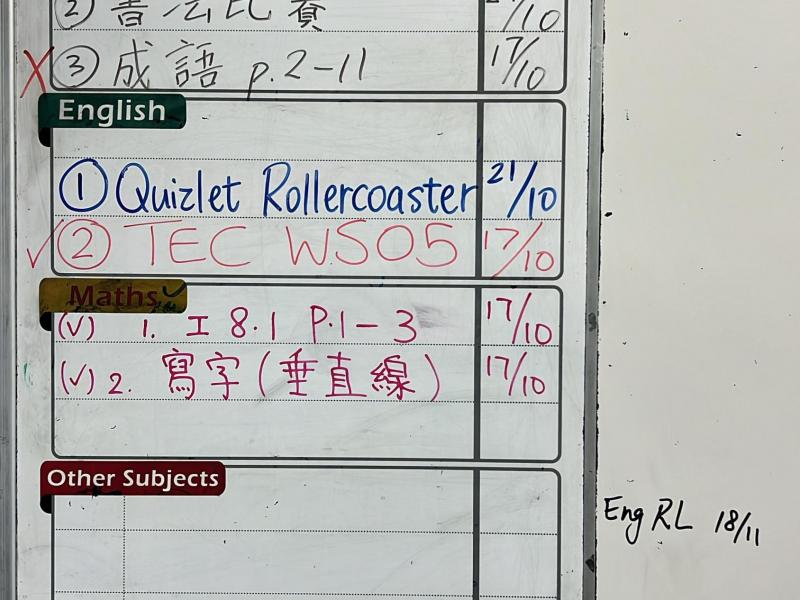 ② 書法比賽 21/10
X ③ 成語 p.2-11 17/10
English
① Quizlet Rollercoaster 21/10
✓ ② TEC WS05 17/10
Maths ✓
(✓) 1. 工 8.1 P.1-3 17/10
(✓) 2. 寫字(垂直線) 17/10
Other Subjects
Eng RL 18/11